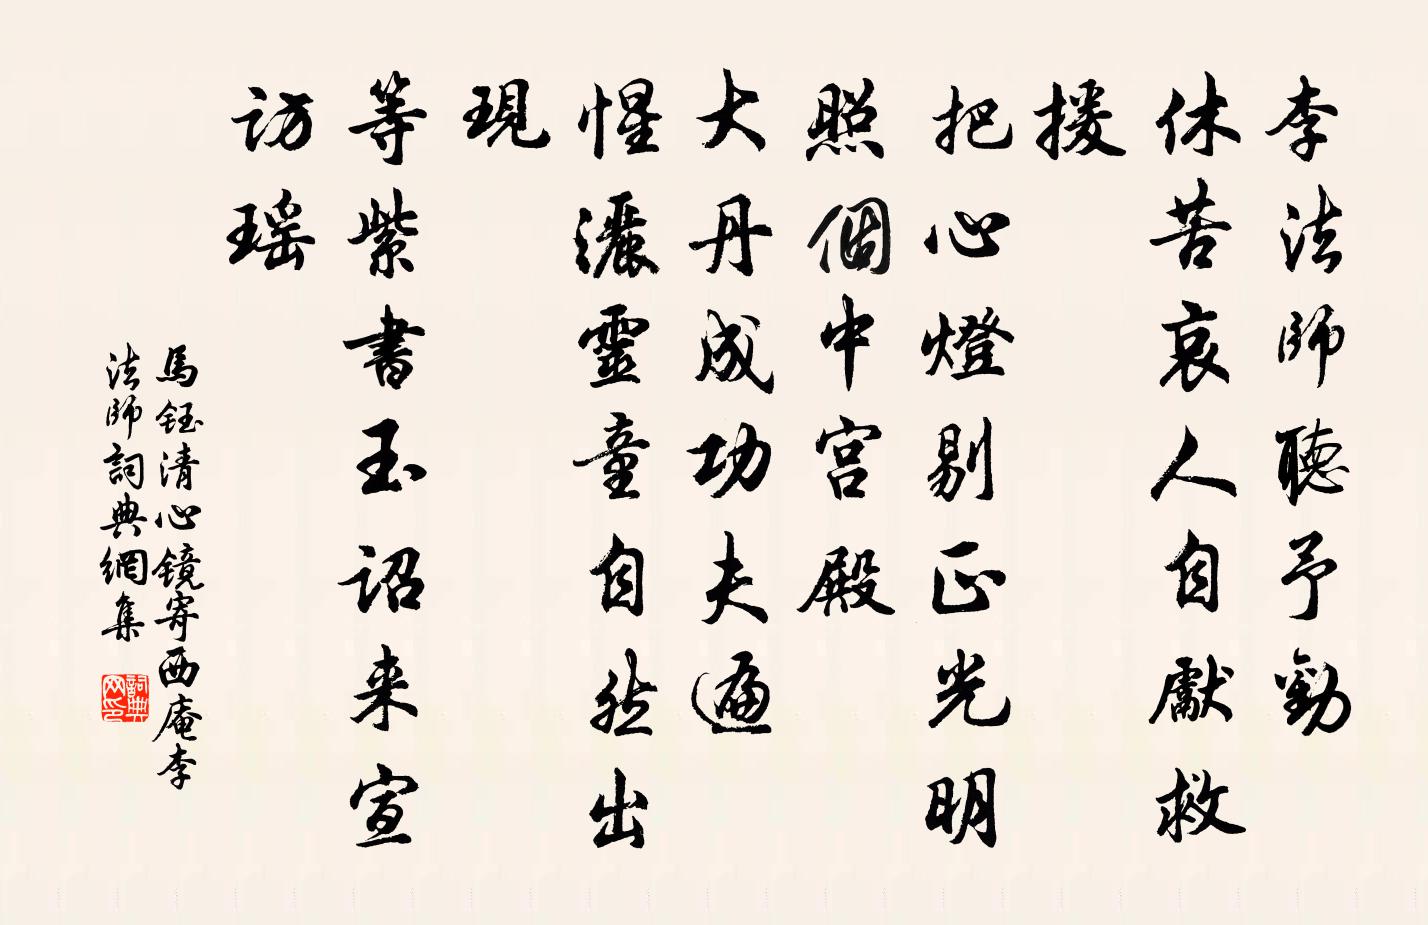 李法師聽予勸
休苦哀人自獻救
援
把心燈剔正光明
照個中宮殿
大丹成功夫遍
惺灑靈童自然出
現
等紫書玉詔来宣
訪瑶
馬鈺清心镜寄西庵李
法師詞典網集
詞典
网印